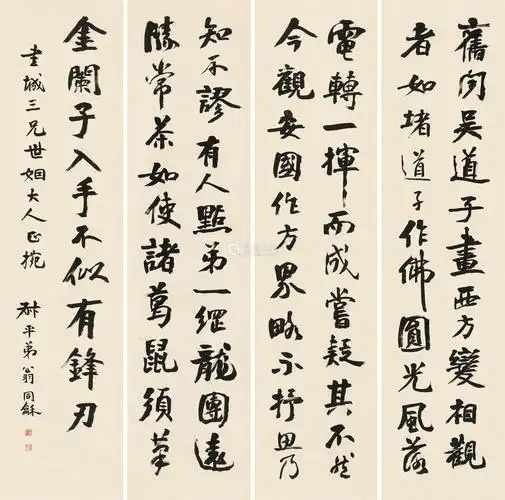 舊聞吳道子畫西方變相觀
者如堵道子作佛圓光風落
電轉一揮而成嘗疑其不然
今觀安國作方界略不抒思乃
知不謬有人點第一綱龍團遠
勝常茶如使諸葛鼠須筆
金闌子入手不似有鋒刃
城三兄世姻大人正捥
叔平弟翁同龢